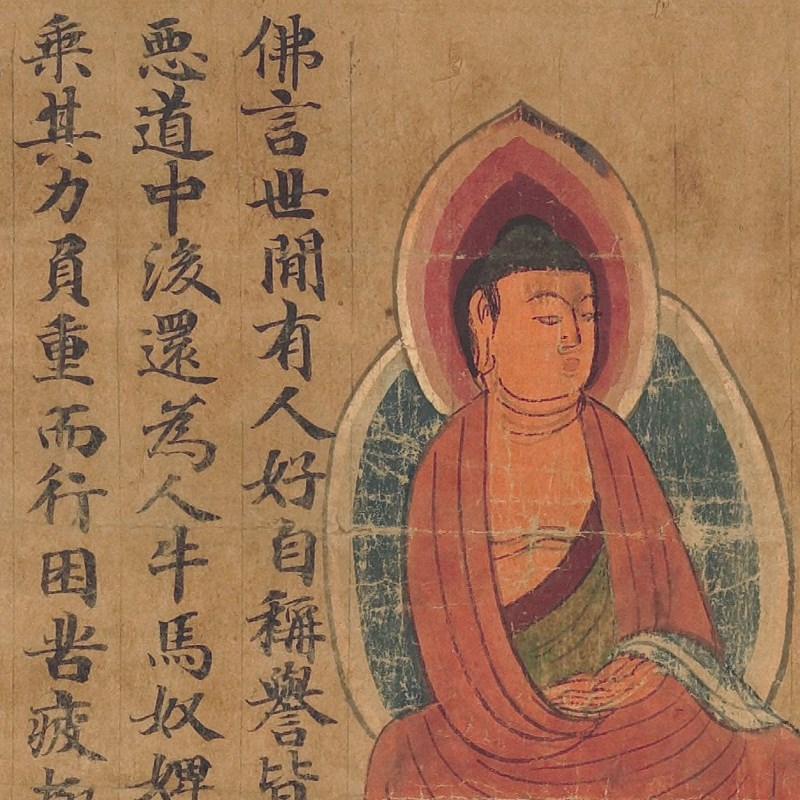 佛言世間有人好自稱譽皆
惡道中後還為人牛馬奴婢
乗其力負重而行困苦疲